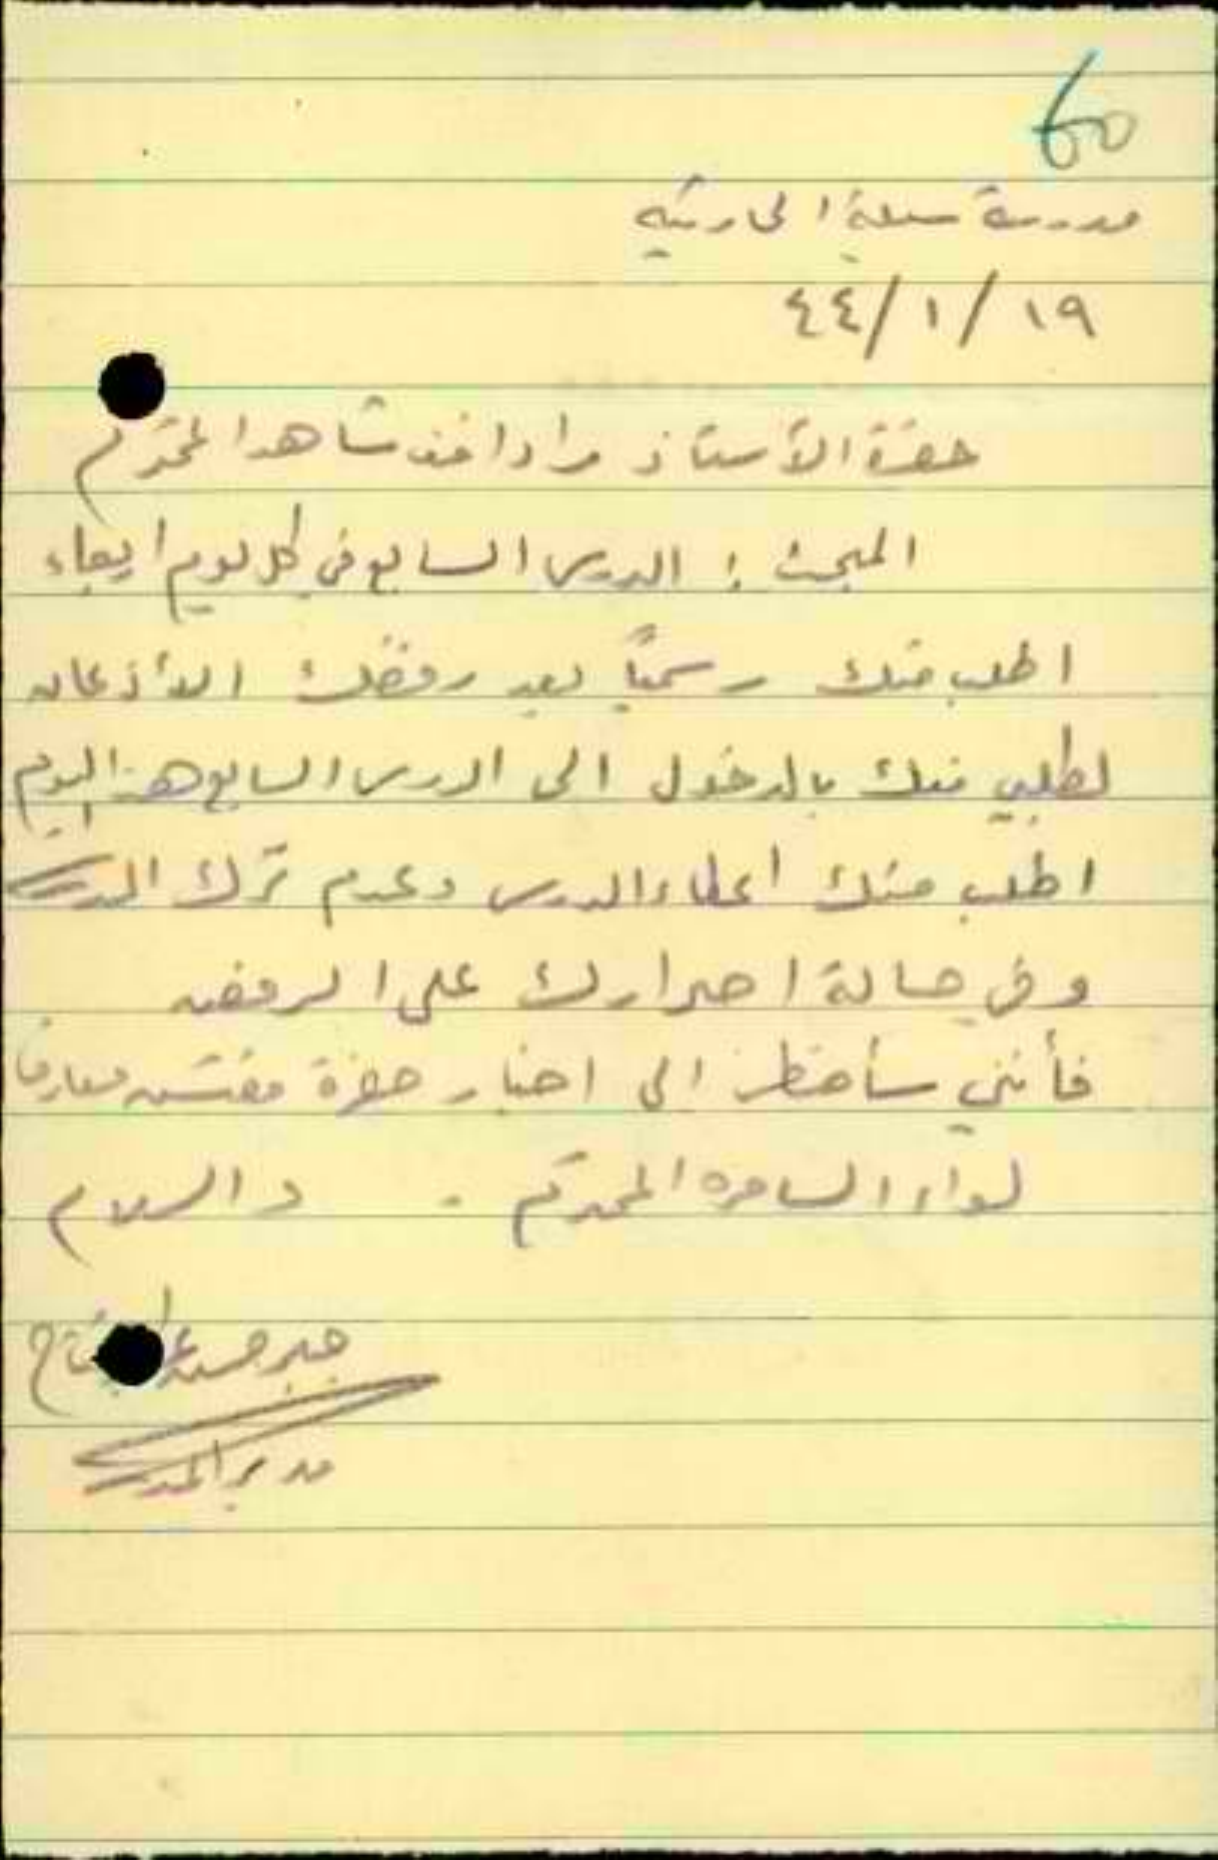 60
مدرسة سيلة الحارثية
١٩/١/٤٤
حضرة الأستاذ مراد افندي شاهد المحترم
المبحث : الدرس السابع في كل يوم اربعاء
اطلب منك رسمياً بعد رفضك الأذعان
لطلبي منك بالدخول الى الدرس السابع هذا اليوم
اطلب منك اعطاء الدرس وعدم ترك المدرسة
وفي حالة اصرارك على الرفض
فأنني سأضطر الى اخبار حضرة مفتش معارف
لواء السامره المحترم . والسلام
حسن عبد الفتاح
مدير المدرسة